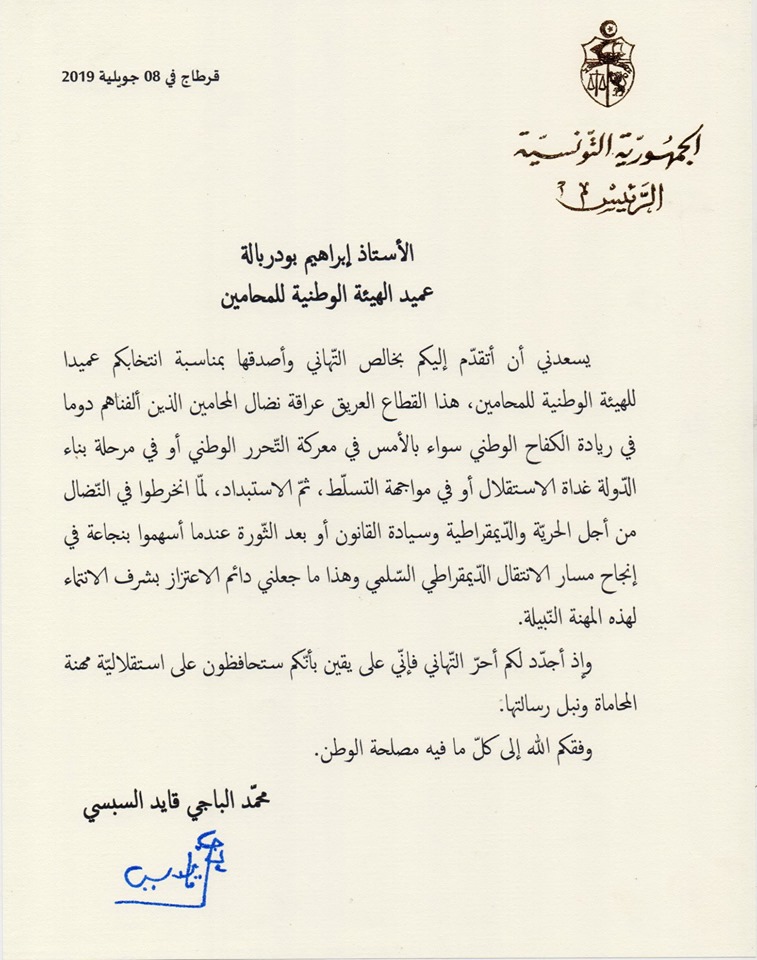 قرطاج في 08 جويلية 2019
الجمهوريّة التّونسيّة
الرّئيس
الأستاذ إبراهيم بودربالة
عميد الهيئة الوطنية للمحامين
يسعدني أن أتقدّم إليكم بخالص التّهاني وأصدقها بمناسبة انتخابكم عميدا
للهيئة الوطنية للمحامين، هذا القطاع العريق عراقة نضال المحامين الذين ألفناهم دوما
في ريادة الكفاح الوطني سواء بالأمس في معركة التّحرر الوطني أو في مرحلة بناء
الدّولة غداة الاستقلال أو في مواجهة التسلّط، ثمّ الاستبداد، لمّا انخرطوا في النّضال
من أجل الحريّة والدّيمقراطية وسيادة القانون أو بعد الثّورة عندما أسهموا بنجاعة في
إنجاح مسار الانتقال الدّيمقراطي السّلمي وهذا ما جعلني دائم الاعتزاز بشرف الانتماء
لهذه المهنة النّبيلة.
وإذ أجدّد لكم أحرّ التّهاني فإنّي على يقين بأنّكم ستحافظون على استقلاليّة مهنة
المحاماة ونبل رسالتها.
وفقكم الله إلى كلّ ما فيه مصلحة الوطن.
محمّد الباجي قايد السبسي